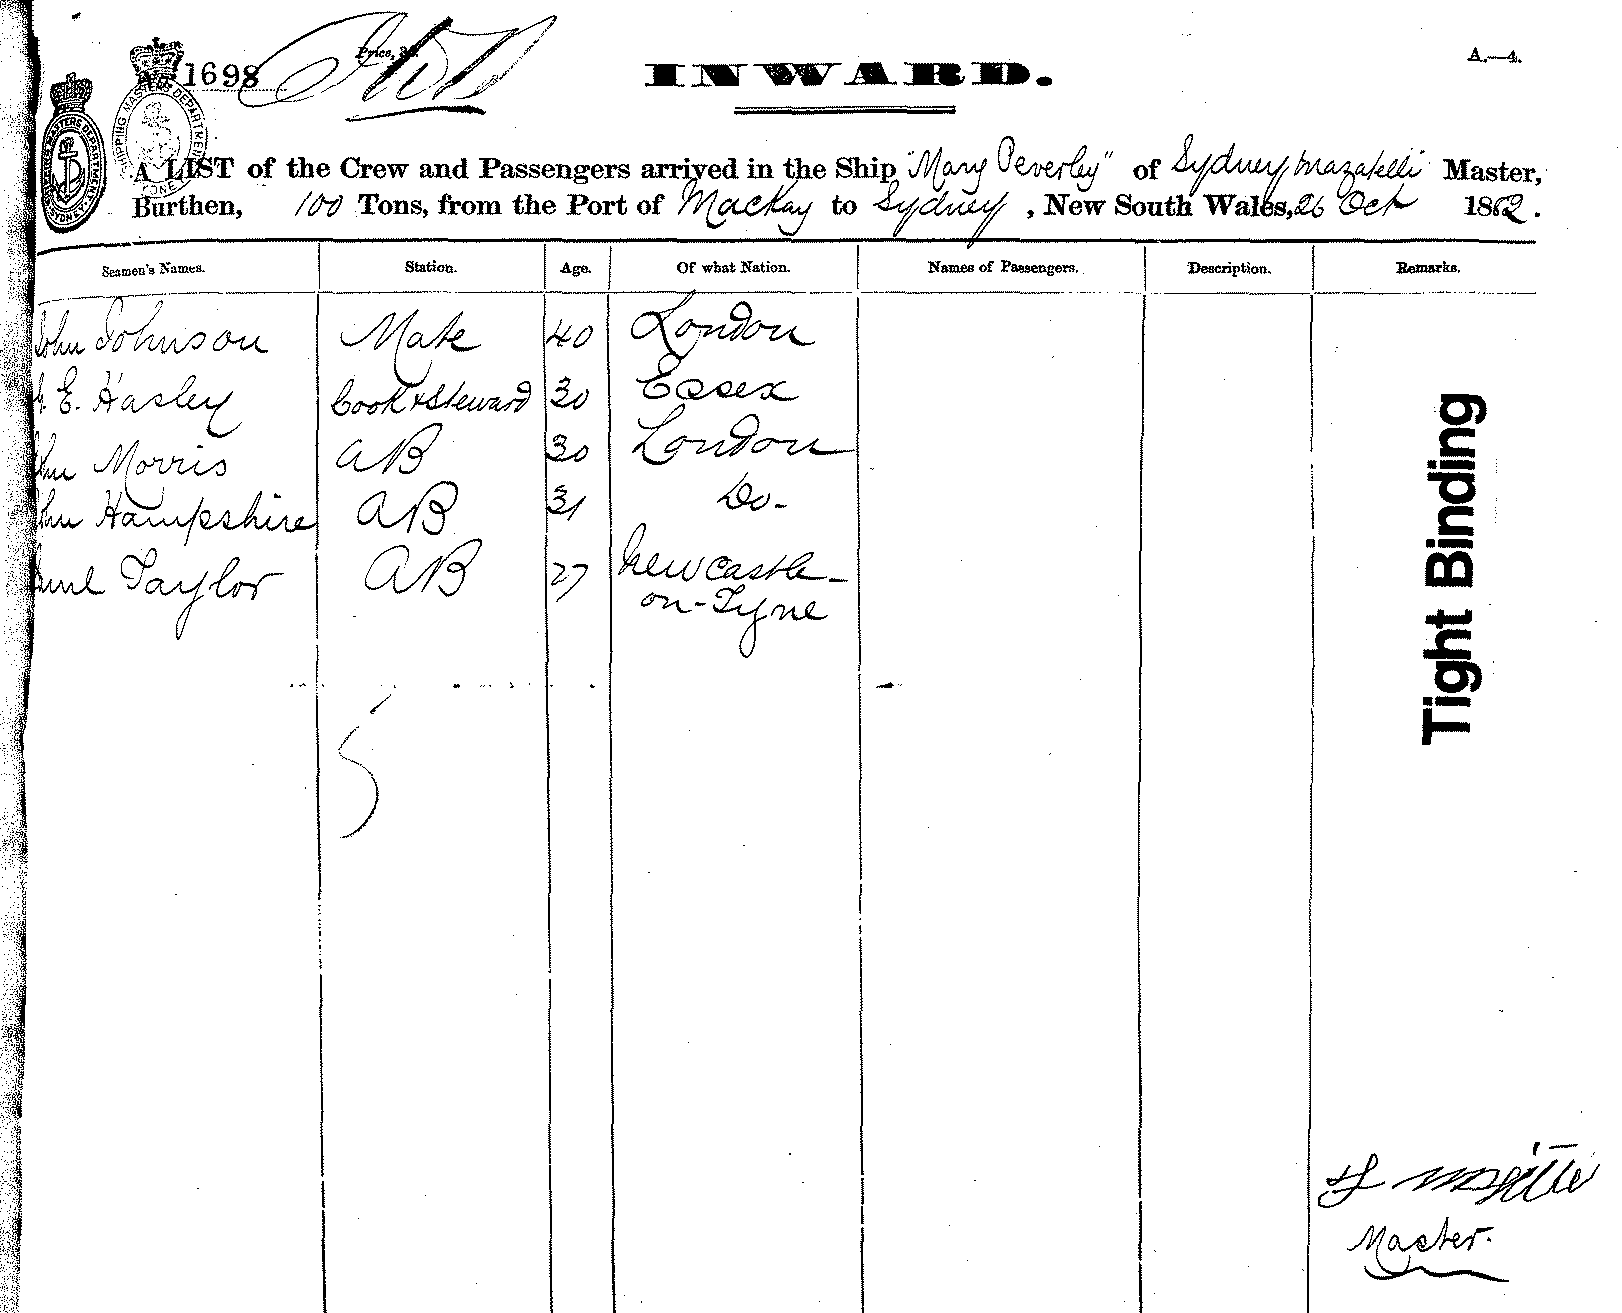 A.—4.
No 1698
INWARD.
A LIST of the Crew and Passengers arrived in the Ship "Mary Peverley" of Sydney, Master,
Burthen, 100 Tons, from the Port of Mackay to Sydney, New South Wales, 26 Oct 1882.
Seamen's Names. Station. Age. Of what Nation. Names of Passengers. Description. Remarks.
John Johnson Mate 40 London
E. Hasley Cook & Steward 30 Essex
John Morris AB 30 London
John Hampshire AB 31 Do-
Taylor AB 27 Newcastle-
on-Tyne
5
Tight Binding
Master.